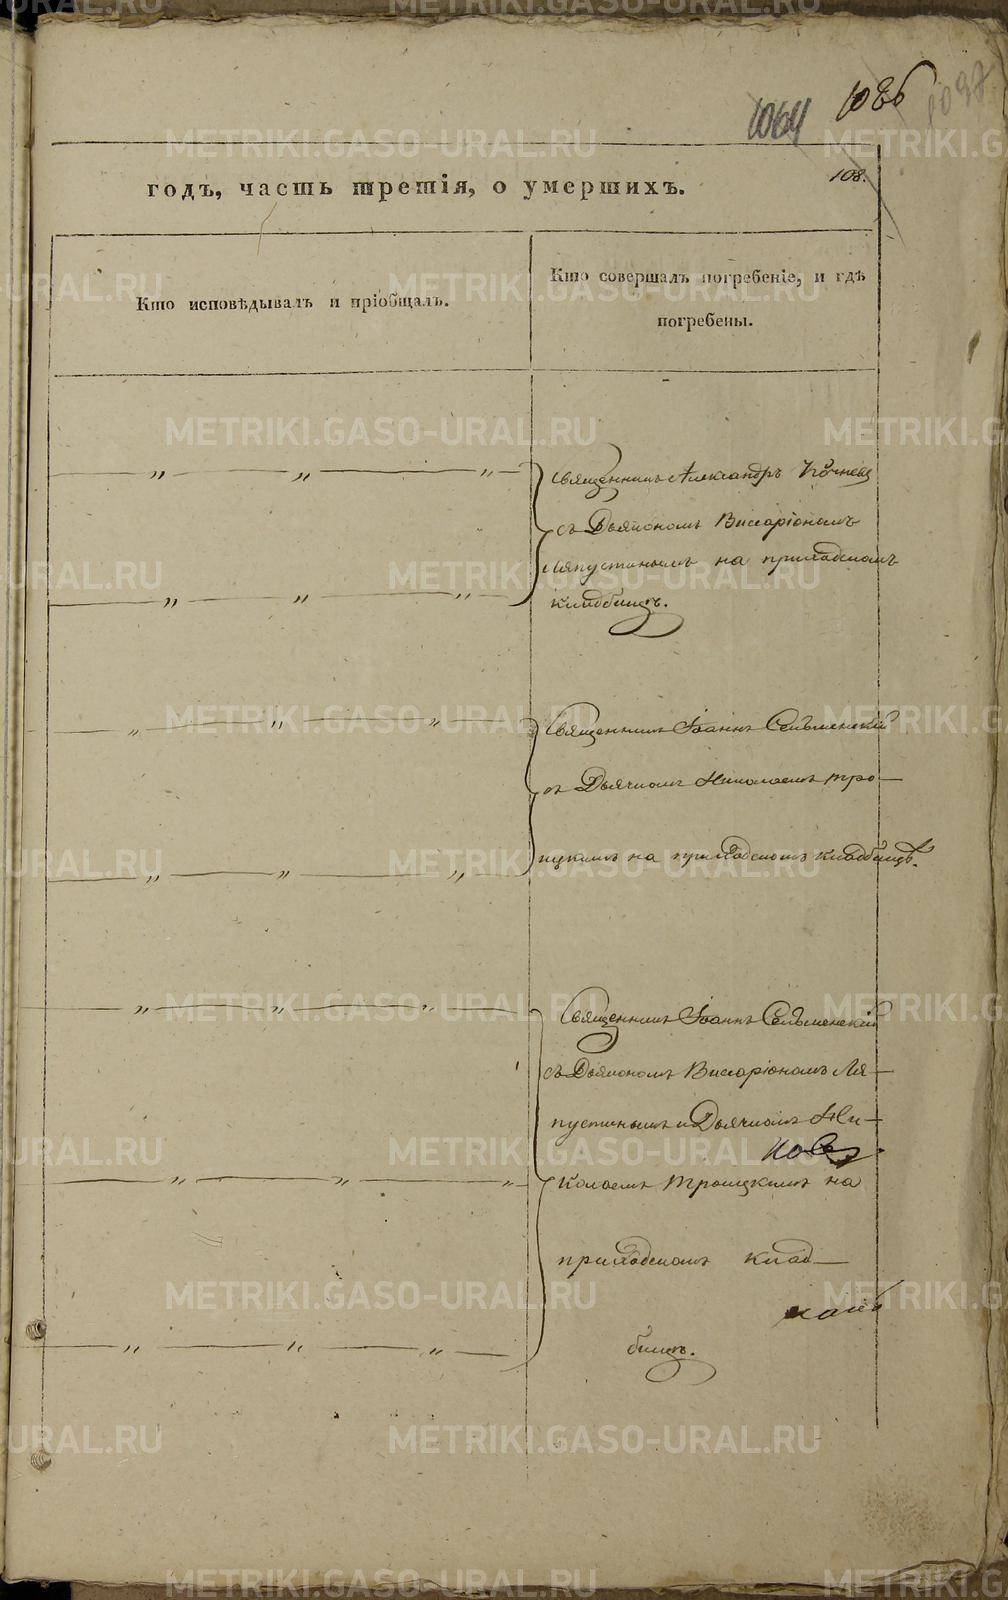 1064 1086 1097
108.
годъ, часть третія, о умершихъ.
Кто исповѣдывалъ и пріобщалъ.
Кто совершалъ погребеніе, и гдѣ
погребены.
Священникъ Александръ Кочневъ
съ Дьякономъ Виссаріономъ
Ляпустинымъ на приходскомъ
кладбищѣ.
Священникъ Іоаннъ Сельменскій
съ Дьячкомъ Николаемъ Тро-
ицкимъ на приходскомъ кладбищѣ.
Священникъ Іоаннъ Сельменскій
съ Дьякономъ Виссаріономъ Ля-
пустинымъ и Дьячкомъ Ни-
колаемъ Троицкимъ на
приходскомъ клад-
бищѣ.
METRIKI.GASO-URAL.RU